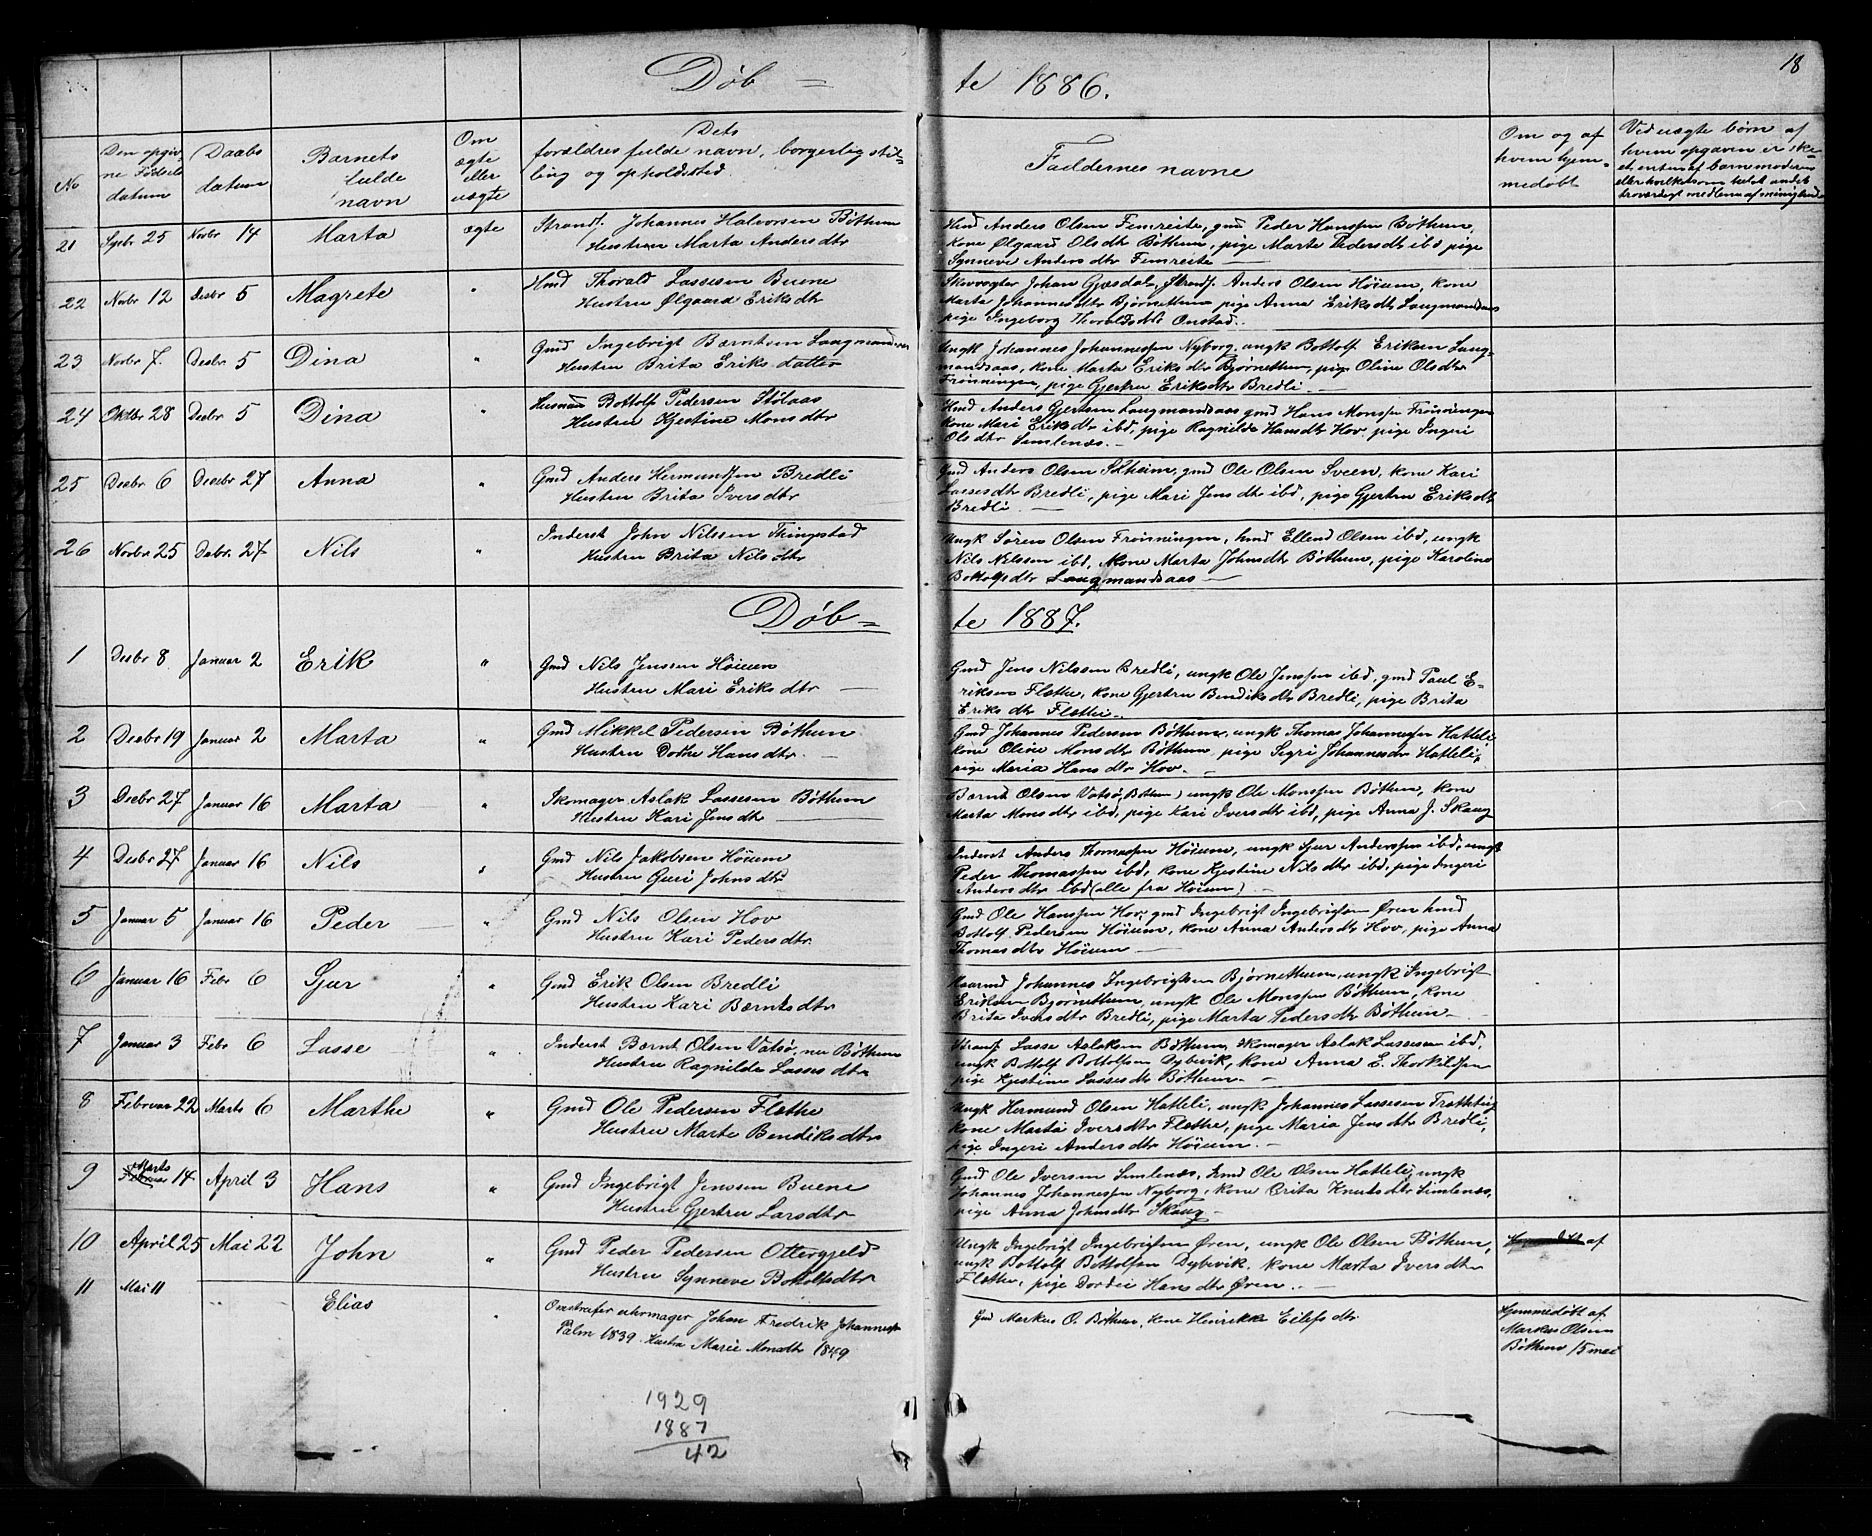 18
Døb = te 1886.
No
Den opgiv,
ne Fødsels
datum
Daabs
datum
Barnets
fulde
navn
Om
ægte
eller
uægte
Dets
forældres fulde navn, borgerlig stil-
ling og opholdssted.
Faddernes navne
Om og af
hvem hjem-
medøbt
Ved uægte børn af
hvem opgaven er ske-
et, enten af barnemoderen
eller hvilketsom helst andet
troværdigt medlem af menigheden
21 Septbr 25 Novbr 14 Marta ægte Strands. Johannes Halvorsen Bøthun
Hustru Marta Anders dtr
Hmd Anders Olsen Fimreite, gmd Peder Hanssen Bøthun,
kone Ølgaard Ols dtr Bøthun, pige Marta Peders dtr ibd pige
Synneve Anders dtr Fimreite —
22 Novbr 12 Desbr 5 Magrete " Hmd Thorald Lassesen Buene
Hustru Ølgaard Eriks dtr
Skovvogter Johan Gjæsdal, Strands. Anders Olsen Høium, kone
Marta Johannes dtr Bjørnethun, pige Anna Eriks dtr Laugmandsaas
pige Ingeborg Thoralds dtr Onstad.
23 Novbr 7. Desbr 5 Dina " Gmd Ingebrigt Berntsen Laugmandsaas
Hustru Brita Eriks datter
Ungk Johannes Johannessen Nyborg, ungk Bottolf Eriksen Laug-
mandsaas, kone Marta Eriks dtr Bjørnethun, pige Oline Ols dtr
Frønningen, pige Gjertru Eriks dtr Bredli —
24 Oktbr 28 Desbr 5 Dina " Husmd Bottolf Pedersen Stølaas
Hustru Kjestine Mons dtr
Hmd Anders Gjertsen Laugmandsaas gmd Hans Monsen Frønningen
kone Mari Eriks dtr ibd, pige Ragnilde Hans dtr Hov, pige Ingeri
Ols dtr Simlenæs. —
25 Desbr 6 Desbr 27 Anna " Gmd Anders Hermundsen Bredli
Hustru Brita Ivers dtr
Gmd Anders Olsen Sxheim, gmd Ole Olsen Sveen, kone Kari
Lasses dtr Bredli, pige Mari Jens dtr ibd, pige Gjertru Eriks dtr
Bredli —
26 Novbr 25 Desbr. 27 Nils " Inderst John Nilssen Thingstad
Hustru Brita Nils dtr
Ungk Søren Olsen Frønningen, hmd Ellend Olsen ibd, ungk
Nils Nilssen ibd, kone Marta Johns dtr Bøthun, pige Karoline
Bottolfs dtr Laugmandsaas —
Døb = te 1887.
1 Desbr 8 Januar 2 Erik " Gmd Nils Jenssen Høium
Hustru Mari Eriks dtr —
Gmd Jens Nilssen Bredli, ungk Ole Jenssen ibd, gmd Paul E-
riksen Flæthe, kone Gjertru Bendiks dtr Bredli, pige Brita
Eriks dtr Flæthe.
2 Desbr 19 Januar 2 Marta " Gmd Mikkel Pedersen Bøthun
Hustru Dorthe Hans dtr. —
Gmd Johannes Pedersen Bøthun, ungk Thomas Johannessen Hatleli,
kone Oline Mons dtr Bøthun, pige Sigri Johannes dtr Hatleli,
pige Maria Hans dtr Hov. —
3 Desbr 27 Januar 16 Marta " Skomager Aslak Lassesen Bøthun
Hustru Kari Jens dtr —
Bernt Olsen Vatsø (Bøthun) ungk Ole Monssen Bøthun, kone
Marta Mons dtr ibd, pige Kari Ivers dtr ibd, pige Anna J. Skaug
4 Desbr 27 Januar 16 Nils " Gmd Nils Jakobsen Høium
Hustru Guri Johns dtr
Inderst Anders Thomassen Høium, ungk Sjur Anderssen ibd, ungk
Peder Thomassen ibd, kone Kjestine Nils dtr ibd, pige Ingeri
Anders dtr ibd (alle fra Høium) —
5 Januar 5 Januar 16 Peder " Gmd Nils Olsen Hov
Hustru Kari Peders dtr.
Gmd Ole Hanssen Hov, gmd Ingebrigt Ingebrigtsen Øren hmd
Bottolf Pedersen Høium, kone Anna Anders dtr Hov, pige Anna
Thomas dtr Høium —
6 Januar 16 Febr 6 Sjur " Gmd Erik Olsen Bredli
Hustru Kari Bernts dtr
Kaarmd Johannes Ingebrigtsen Bjørnethun, ungk Ingebrigt
Eriksen Bjørnethun, ungk Ole Monssen Bøthun, kone
Brita Ivers dtr Bredli, pige Marta Peders dtr Bøthun —
7 Januar 3 Febr 6 Lasse " Inderst Bernt Olsen Vatsø, nu Bøthun
Hustru Ragnilde Lasses dtr
Strands. Lasse Aslaksen Bøthun, skomager Aslak Lassesen ibd,
ungk Bottolf Bottolfsen Dybevik, kone Anna E. Thorkildsen
pige Kjestine Lasses dtr Bøthun. —
8 Februar 22 Marts 6 Marthe " Gmd Ole Pedersen Flæthe
Hustru Marta Bendiks dtr
Ungk Hermund Olsen Hatleli, ungk Johannes Lassesen Trætteteig
kone Marta Ivers dtr Flæthe, pige Maria Jens dtr Bredli,
pige Ingeri Anders dtr Høium. —
9 Marts
Februar 14 April 3 Hans " Gmd Ingebrigt Jenssen Buene
Hustru Gjertru Lars dtr
Gmd Ole Iversen Simlenæs, hmd Ole Olsen Hatleli, ungk
Johannes Johannessen Nyborg, kone Brita Knuts dtr Simlenæs,
pige Anna Johns dtr Skaug —
10 April 25 Mai 22 John " Gmd Peder Pedersen Ottergjeld
Hustru Synneve Bottolfs dtr
Ungk Ingebrigt Ingebrigtsen Øren, ungk Ole Olsen Bøthun,
ungk Bottolf Bottolfsen Dybevik, kone Marta Ivers dtr
Flæthe, pige Dordei Hans dtr Øren. —
Hjemmedøbt af
11 Mai 11 Elias " Omstreifer uhrmager Johan Fredrik Johannessen
Palm 1839. Hustru Marie Mons dtr 1849.
Gmd Markus O. Bøthun, kone Henrikke Eilefs dtr
Hjemmedøbt af
Markus Olsen
Bøthun 15 mai
1929
1887
42